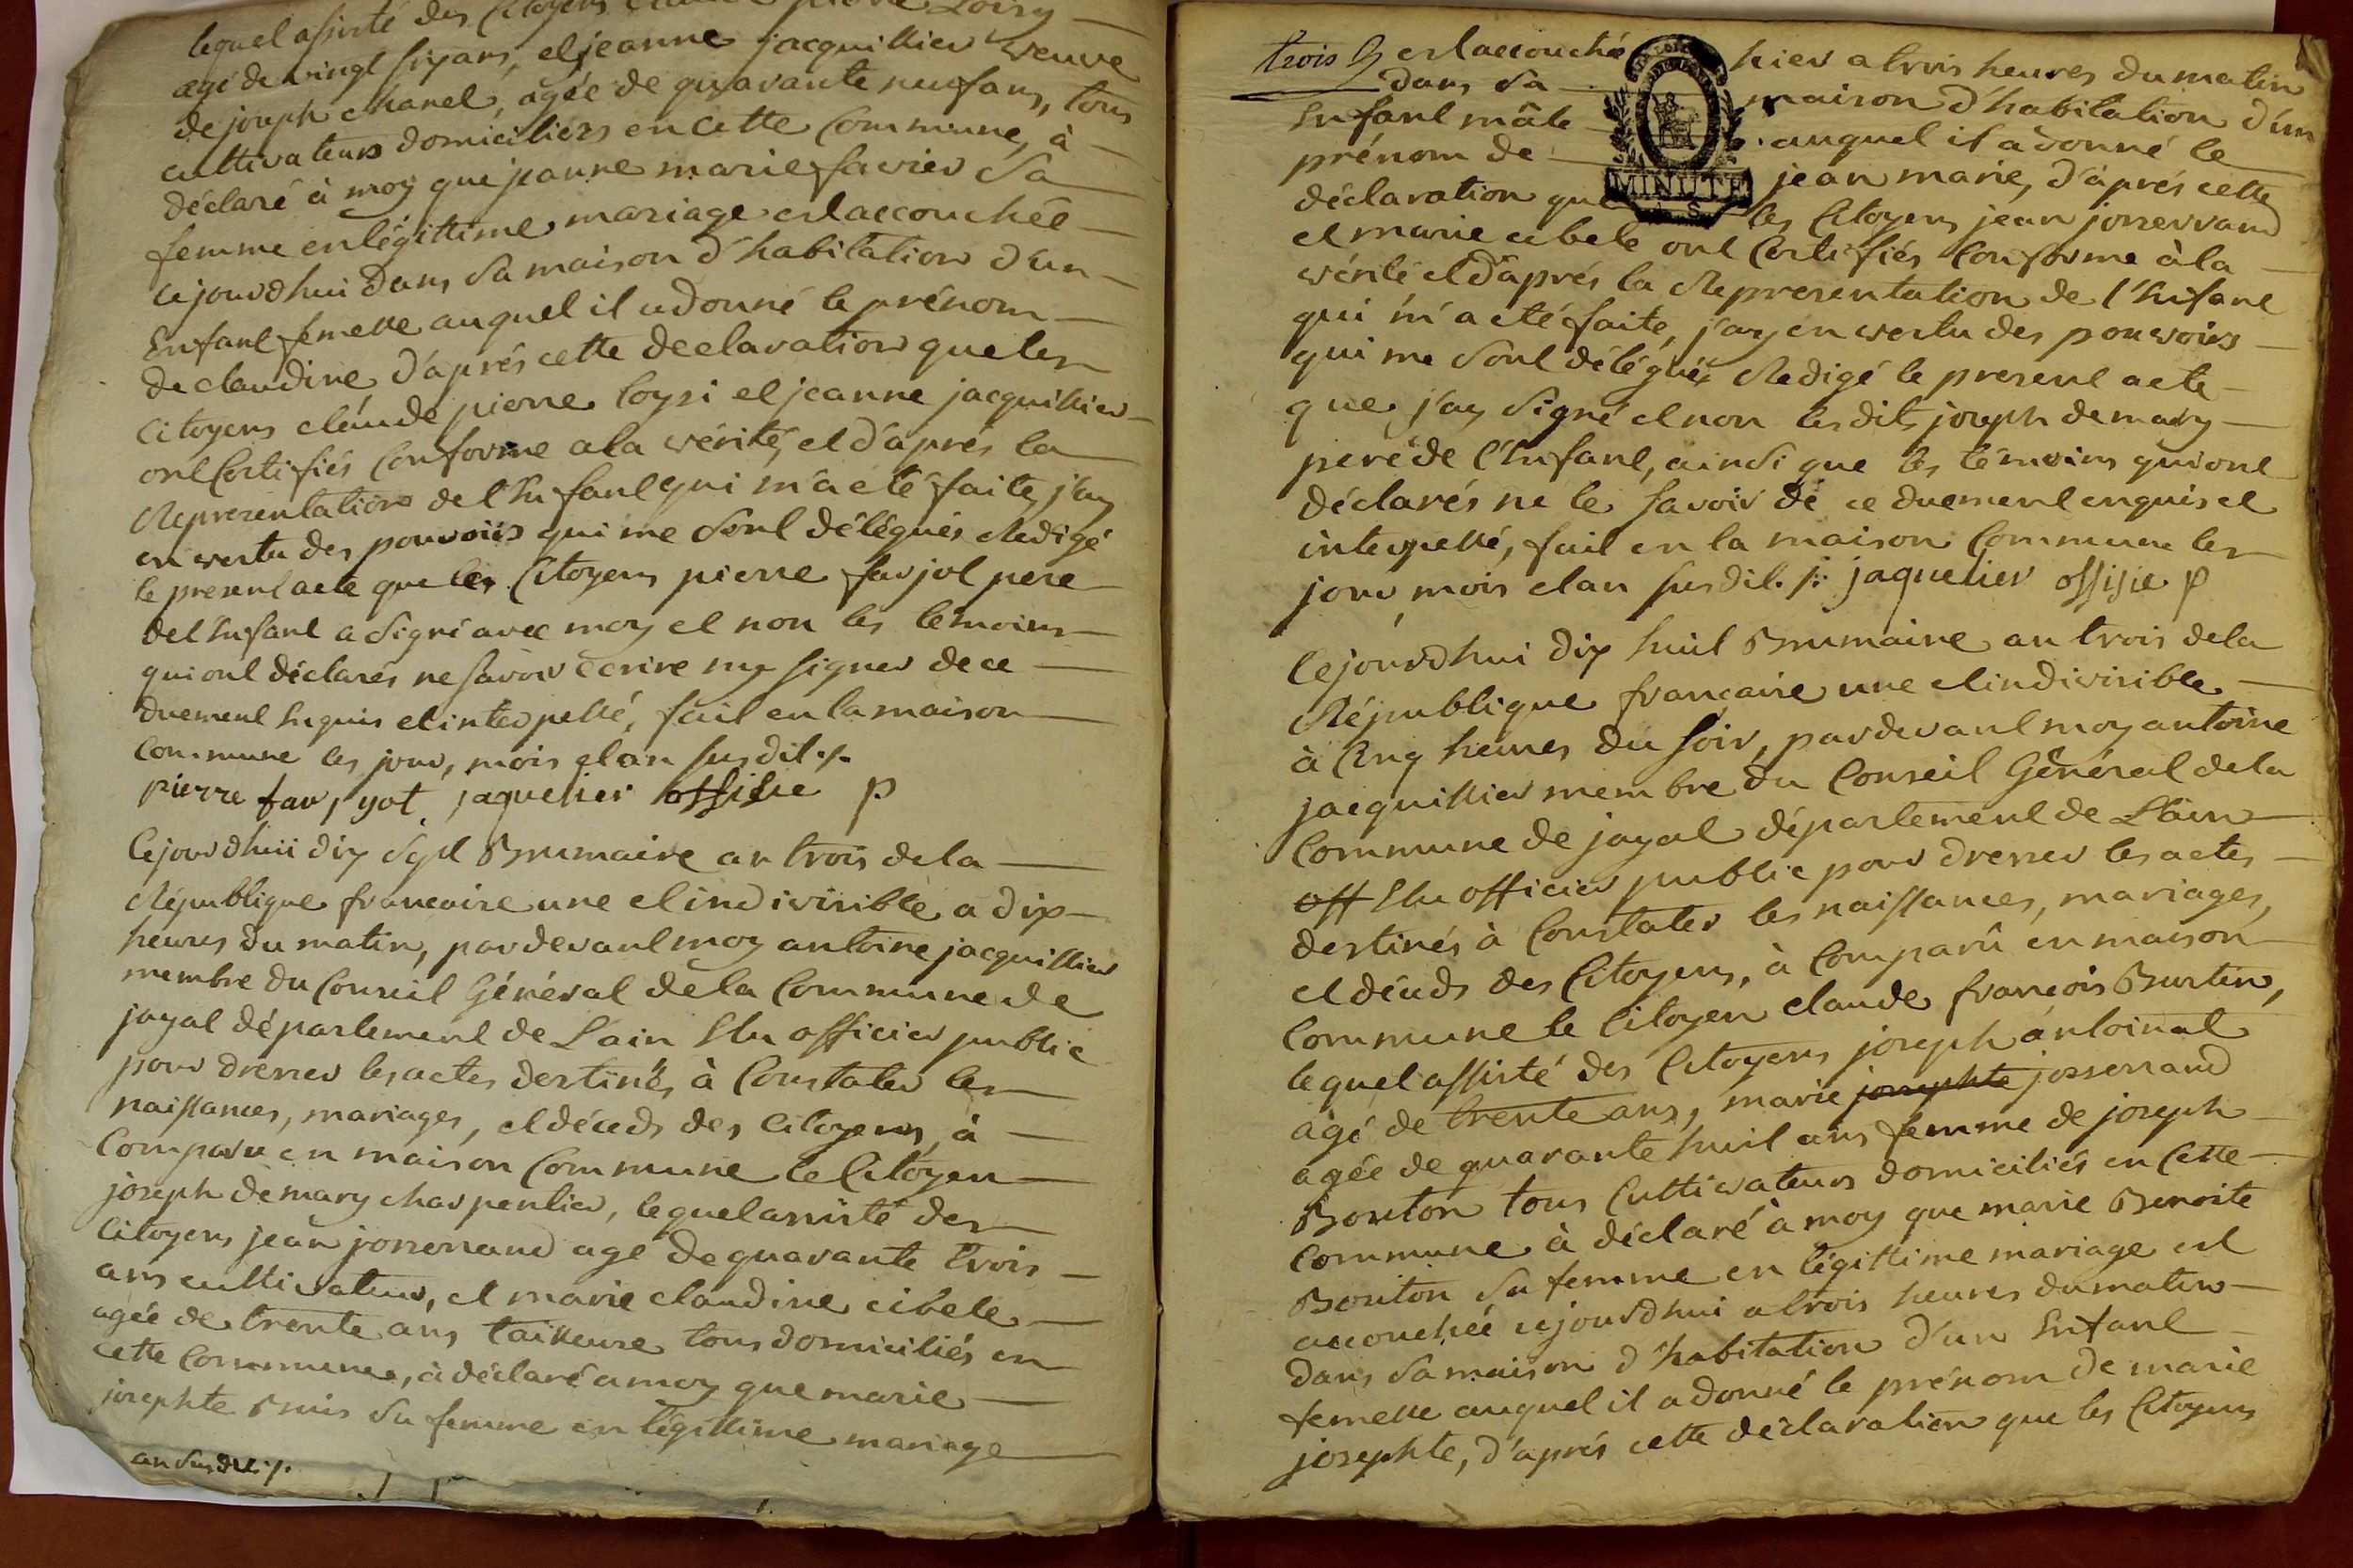 lequel assisté des Citoyens Claude pierre Loisy
agé de vingt six ans, et jeanne jacquillier veuve
de joseph chanel, agée de quarante neuf ans, tous
cultivateurs domiciliés en cette Commune, à
déclaré à moy que jeanne marie favier sa
femme en légittime mariage est accouchée
cejourdhui dans sa maison d'habitation d'un
Enfant femelle auquel il a donné le prénom
de claudine, d'aprés cette declaration que les
Citoyens claude pierre loysi et jeanne jacquillier
ont Certifiés Conforme a la vérité, et d'aprés la
Representation de l'Enfant qui m'a eté faite, j'ay
en vertu des pouvoirs qui me sont délégués Redigé
le present acte que les Citoyens pierre favjol pere
de l'Enfant a signé avec moy et non les temoins
qui ont déclarés ne savoir écrire ny signer de ce
duement Enquis et interpellé, fait en la maison
Commune les jour, mois et an susdit ./.
pierre fav, yot jaquelier offisie p
Cejourdhui dix sept Brumaire an trois de la
République francaise une et indivisible a dix
heures du matin, pardevant moy antoine jacquillier
membre du Conseil Général de la Commune de
jayat département de L'ain Elu officier public
pour dresser les actes destinés à Constater les
naissances, mariages, et décèds des Citoyens, à
Comparu en maison Commune le Citoyen
joseph demary charpentier, lequel assisté des
Citoyens jean josserand agé de quarante trois
ans cultivateur, et marie claudine cibele
agée de trente ans tailleuse tous domiciliés en
cette Commune, à déclaré a moy que marie
josephte Buis sa femme en légittime mariage
an susdit ./.
trois est accouchée hier a trois heures du matin
dans sa maison d'habitation d'un
Enfant mâle auquel il a donné le
prénom de jean marie, d'aprés cette
MINUTE
déclaration que les Citoyens jean josserrand
et marie cibele ont Certifiés Conforme à la
vérité et d'aprés la Representation de l'Enfant
qui m'a eté faite, j'ay en vertu des pouvoirs
qui me sont délégués Redigé le present acte
que j'ay signé et non lesdits joseph demary
pere de l'Enfant, ainsi que les témoins qui ont
déclarés ne le savoir dé ce duement enquis et
interpellé, fait en la maison Commune les
jour, mois et an susdit ./. jaquelier offisie p
Cejourdhui dix huit Brumaire an trois de la
République francaise une et indivisible
à Cinq heures du soir, pardevant moy antoine
jacquillier membre du Conseil Général de la
Commune de jayat département de L'ain
off Elu officier public pour dresser les actes
destinés à Constater les naissances, mariages,
et décèds des Citoyens, à Comparû en maison
Commune le Citoyen claude francois Burtin,
lequel assisté des Citoyens joseph antoinat
agé de trente ans, marie josephte josserand
agée de quarante huit ans femme de joseph
Bouton tous Cultivateurs domiciliés en Cette
Commune à déclaré à moy que marie Benoite
Bouton sa femme en légittime mariage est
accouchée cejourdhui a trois heures du matin
dans sa maison d'habitation d'un Enfant
femelle auquel il a donné le prénom de marie
josephte, d'aprés cette déclaration que les Citoyens